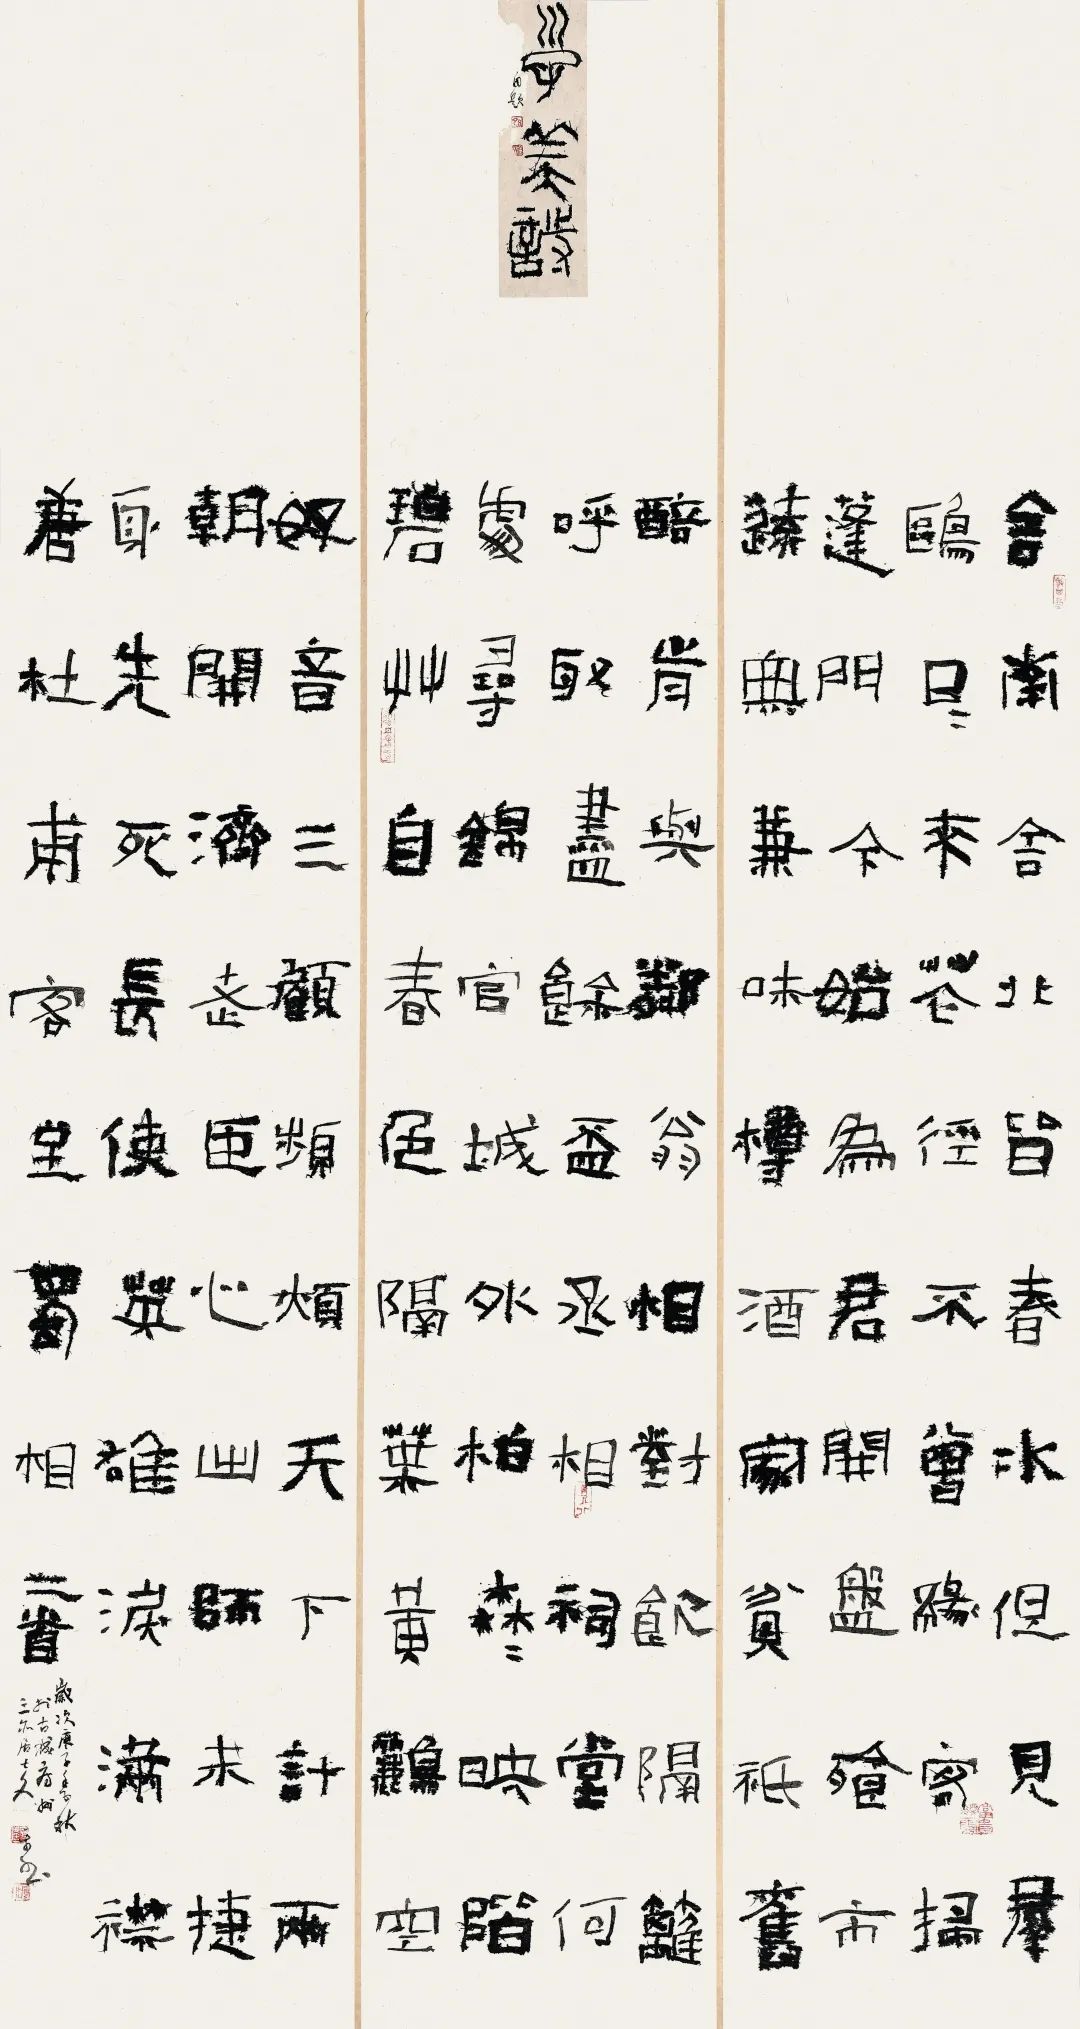 舍南舍北皆春水但見羣
鷗日〻來花徑不曾緣客掃
蓬門今始為君開盤飧市
遠無兼味樽酒家貧祇舊
醅肯與鄰翁相對飲隔籬
呼取盡餘盃丞相祠堂何
處尋錦官城外柏森〻映階
碧艸自春色隔葉黃鸝空
好音三顧頻煩天下計兩
朝開濟老臣心出師未捷
身先死長使英雄淚滿襟
唐杜甫客至蜀相二首
歲次庚子季秋